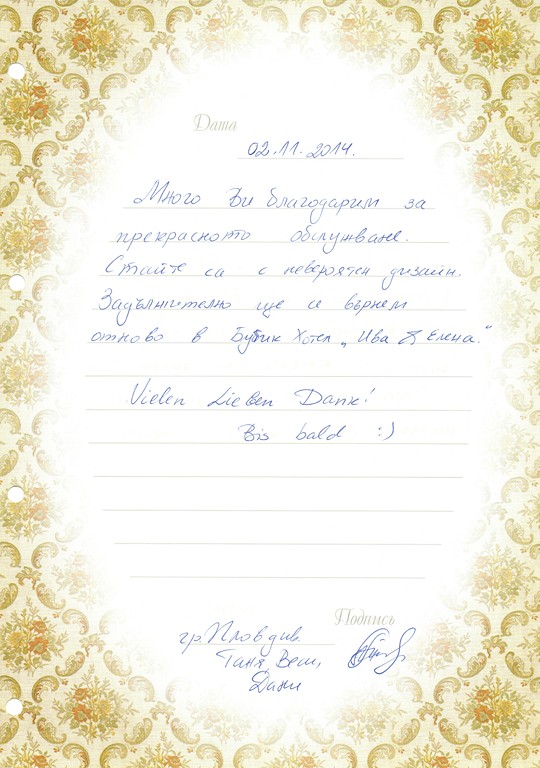 Дата
02.11.2014.
Много Ви благодарим за
прекрасното обслужване.
Стаите са с невероятен дизайн.
Задължително ще се върнем
отново в Бутик Хотел „Ива & Елена."
Vielen Lieben Dank!
Bis bald :)
Подпись
гр. Пловдив
Таня, Веси,
Дани